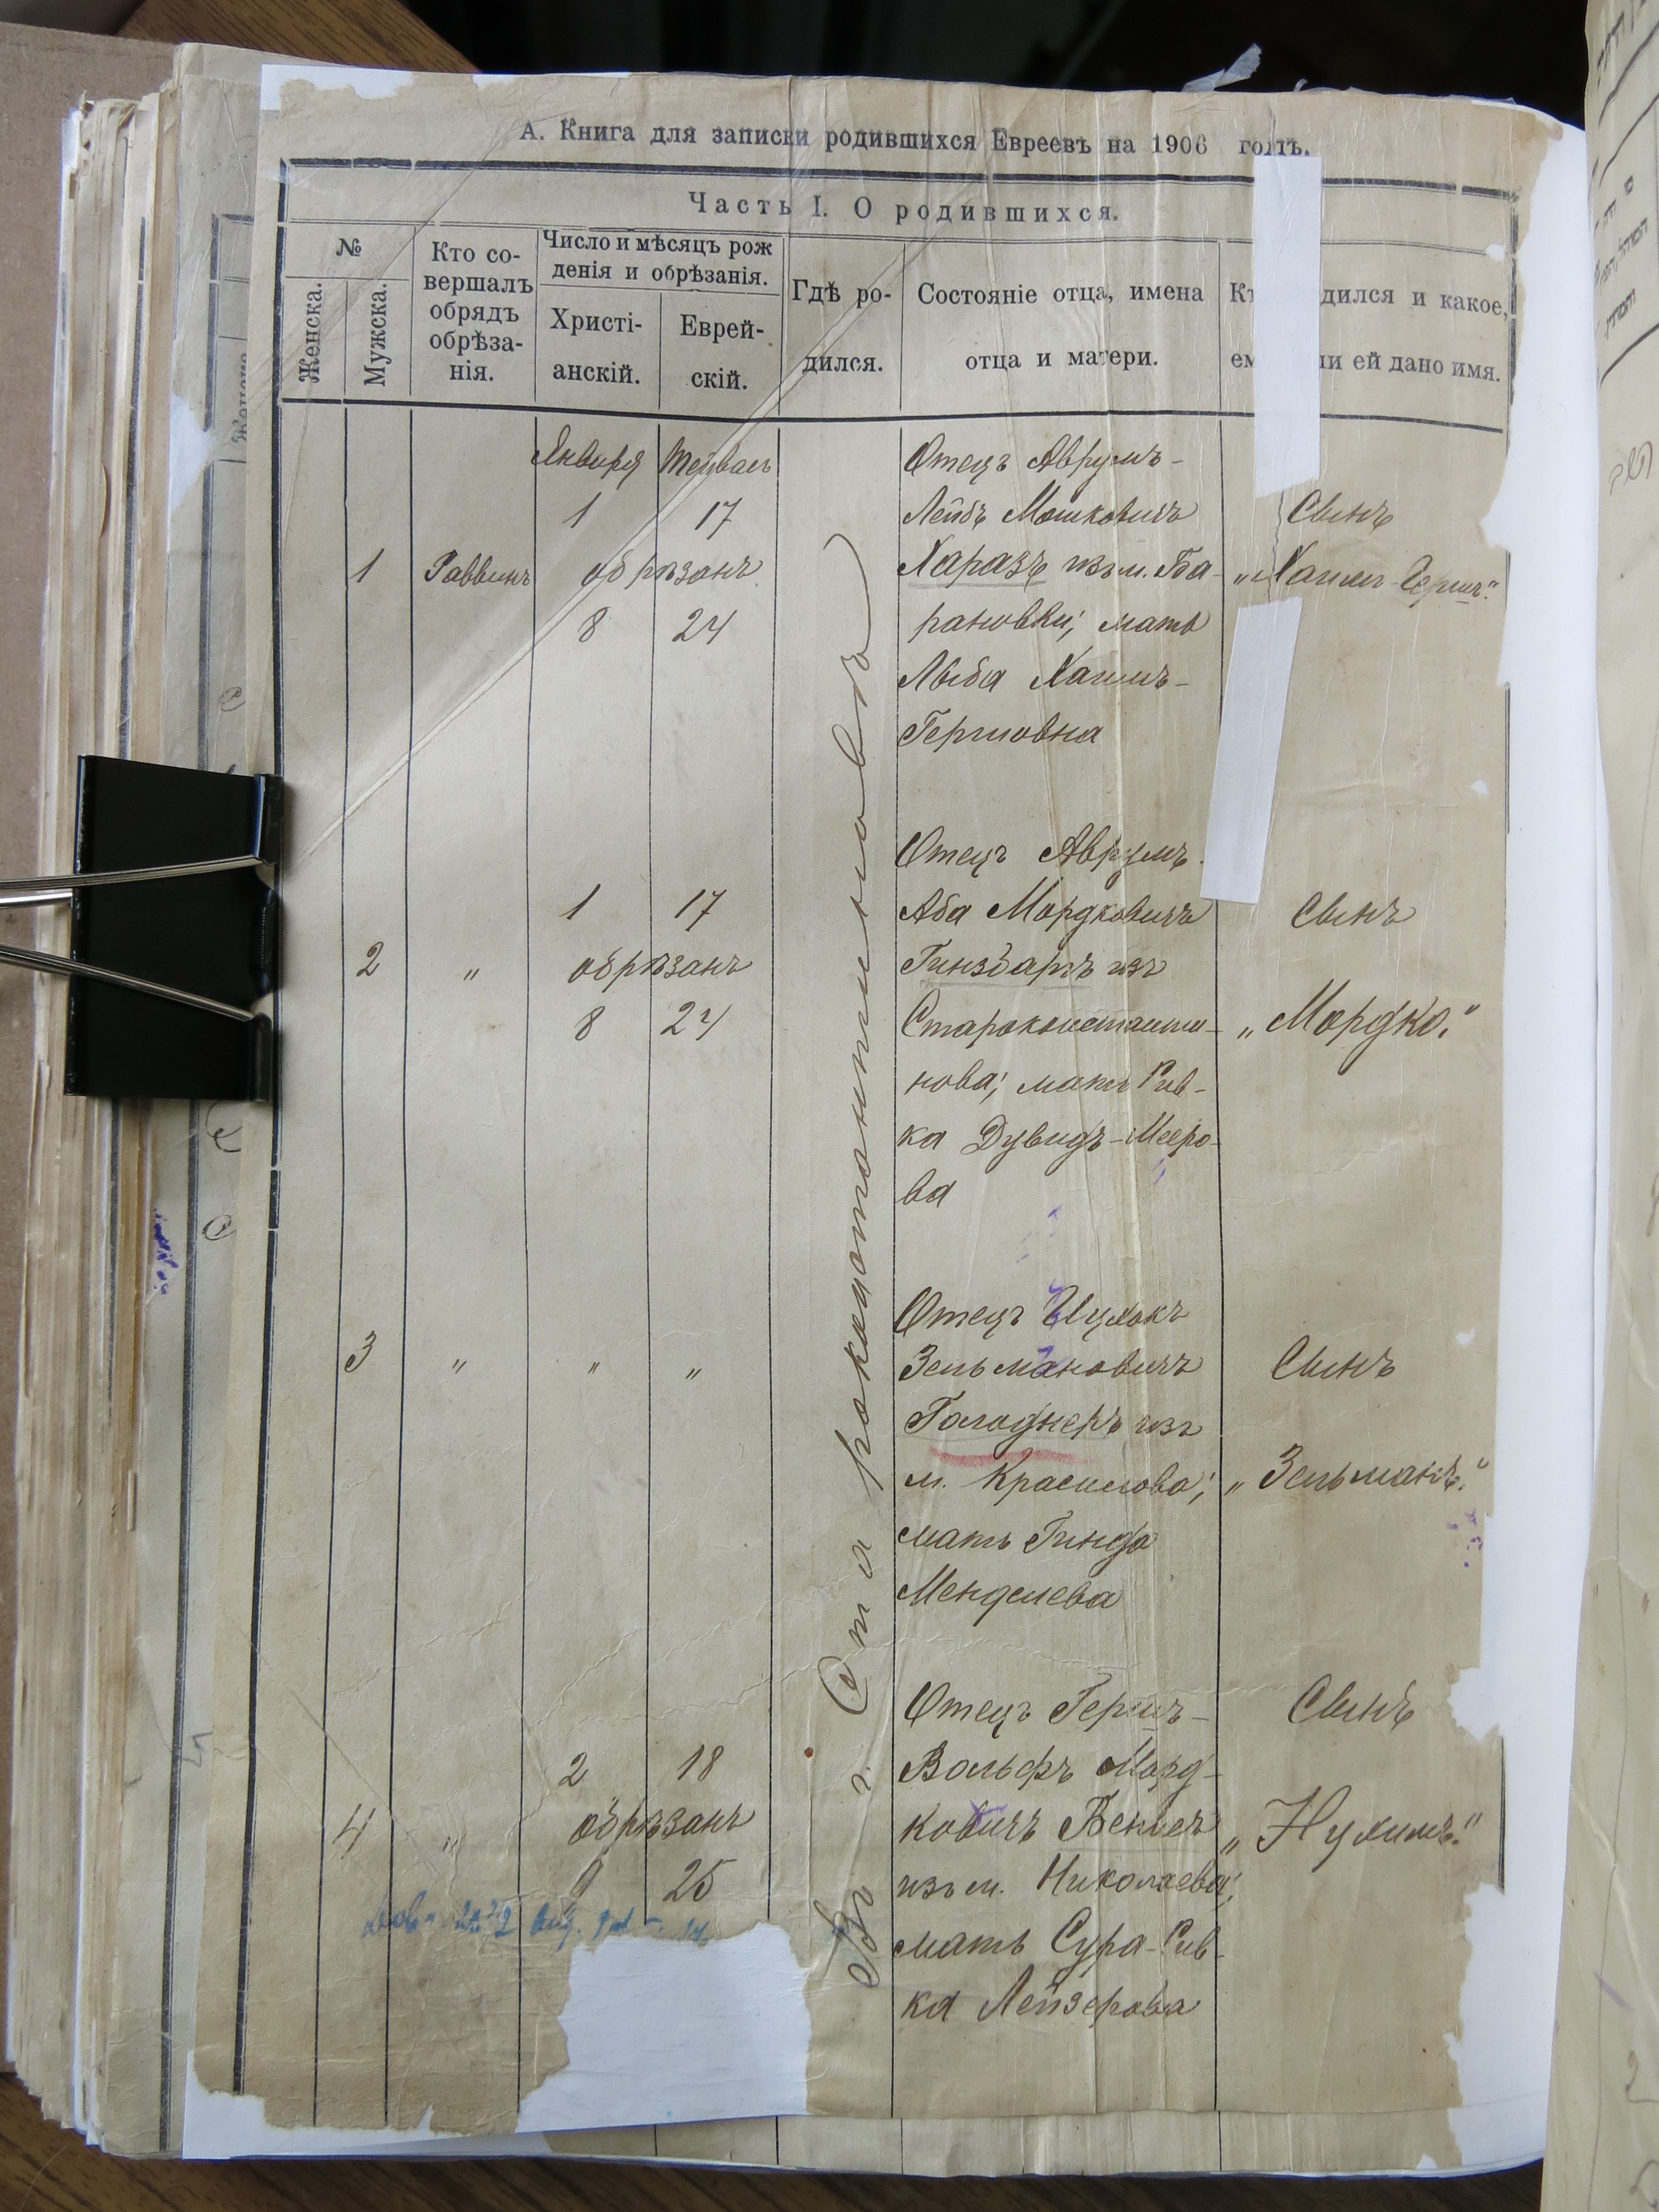 А. Книга для записки родившихся Евреевъ на 1906 годъ.
Часть I. О родившихся.
№
Женска.
Мужска.
Кто со-
вершалъ
обрядъ
обрѣза-
нія.
Число и мѣсяцъ рож
денія и обрѣзанія.
Христі-
анскій.
Еврей-
скій.
Гдѣ ро-
дился.
Состояніе отца, имена
отца и матери.
дился и какое,
ей дано имя.
Января Тейвасъ
1 17
1 Раввинъ обрѣзанъ
8 24
Отецъ Аврумъ-
Лейбъ Мошковичъ
Харазъ изъ м. Ба-
рановки; мать
Хаимъ-
Гершовна
Сынъ
„Хаимъ-Гершъ."
въ г. Староконстантиновѣ
1 17
2 „ обрѣзанъ
8 24
Отецъ Аврумъ
Аба Мордковичъ
Гинзбаргъ изъ
Староконстанти-
нова; мать Рив-
ка Дувидъ-Мееро-
ва
Сынъ
„Мордко."
3 „ „ „
Отецъ Ицхокъ
Зельмановичъ
Голоднеръ изъ
м. Красилова;
мать Гинда
Менделева
Сынъ
„Зельманъ."
2 18
4 „ обрѣзанъ
9 25
Отецъ Гершъ-
Вольфъ Морд-
ковичъ
изъ м. Николаева;
мать Сура-Рив-
ка Лейзерова
Сынъ
„Нухимъ."